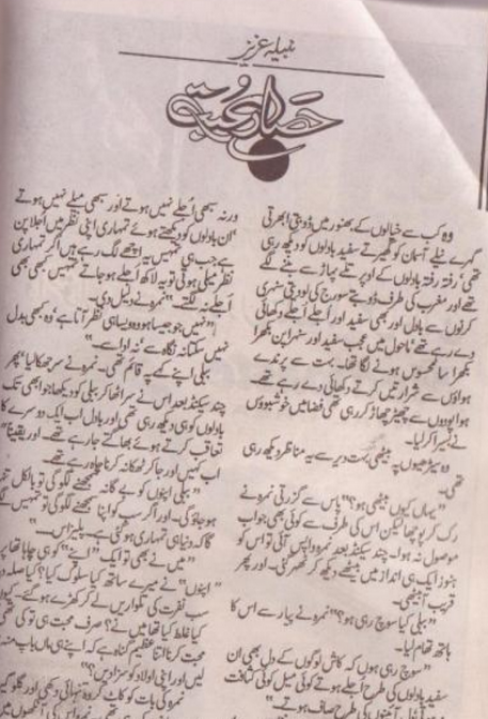 نبیلہ عزیز
حصارِ محبت
وہ کب سے خیالوں کے بھنور میں ڈوبتی ابھرتی
گہرے نیلے آسمان کو گھیرتے سفید بادلوں کو دیکھ رہی
تھی، رفتہ رفتہ بادلوں کے اوپر تلے پہاڑ سے بننے لگے
تھے اور مغرب کی طرف ڈوبتے سورج کی لو دیتی سنہری
کرنوں سے بادل اور بھی سفید اور اجلے اجلے دکھائی
دے رہے تھے، ماحول میں عجب سفید اور سنہرا پن بکھرا
بکھرا سا محسوس ہونے لگا تھا۔ بہت سے پرندے
ہواؤں سے شرارتیں کرتے دکھائی دے رہے تھے۔
ہوا پودوں سے چھیڑ چھاڑ کر رہی تھی فضا میں خوشبوؤں
نے بسیرا کر لیا۔
وہ سیڑھیوں پہ بیٹھی بہت دیر سے یہ مناظر دیکھ رہی
تھی۔
”یہاں کیوں بیٹھی ہو؟“ پاس سے گزرتی نمرہ نے
رک کر پوچھا لیکن اس کی طرف سے کوئی بھی جواب
موصول نہ ہوا۔ چند سیکنڈ بعد نمرہ واپس آئی تو اس کو
ہنوز ایک ہی انداز میں بیٹھے دیکھ کر ٹھہر گئی۔ اور پھر
قریب آ بیٹھی۔
”ببلی کیا سوچ رہی ہو؟“ نمرہ نے پیار سے اس کا
ہاتھ تھام لیا۔
”سوچ رہی ہوں کہ کاش لوگوں کے دل بھی ان
سفید بادلوں کی طرح اجلے ہوتے کوئی میل کوئی کثافت
آئینوں کی طرح صاف ہوتے۔“
ورنہ سبھی اجلے نہیں ہوتے اور سبھی میلے نہیں ہوتے
ان بادلوں کو دیکھتے ہوئے تمہاری اپنی نظر میں اجلا پن
ہے جب ہی تمہیں یہ اچھے لگ رہے ہیں اگر تمہاری
نظر میلی ہوتی تو یہ لاکھ اجلے ہو جاتے تمہیں کبھی بھی
اجلے نہ لگتے۔“ نمرہ نے دلیل دی۔
”نہیں جو جیسا ہو وہ ویسا ہی نظر آتا ہے، وہ کبھی بدل
نہیں سکتا نہ نگاہ سے، نہ ادا سے۔“
ببلی اپنے کہے پہ قائم تھی۔ نمرہ نے سر جھکا لیا، پھر
چند سیکنڈ بعد اس نے سر اٹھا کر ببلی کو دیکھا جو ابھی تک
بادلوں کو ہی دیکھ رہی تھی اور بادل اب ایک دوسرے کا
تعاقب کرتے ہوئے بھاگتے جا رہے تھے۔ اور یقیناً
اب کہیں اور جا کر ٹھکانہ کرنا چاہ رہے تھے۔
”ببلی اپنوں کو بے گانہ سمجھنے لگو گی تو بالکل
ہو جاؤ گی۔ اور اگر سب کو اپنا سمجھنے لگو گی تو تمہیں
گا کہ دنیا ہی تمہاری ہو گئی ہے۔ پلیز اس۔“
”میں نے بھی تو ایک ”اپنے“ کو ہی چاہا تھا
”اپنوں“ نے میرے ساتھ کیا سلوک کیا؟ کیا صلہ
سب نفرت کی تلواریں لے کر کھڑے ہو گئے۔
کیا غلط کیا تھا میں نے؟ صرف محبت ہی تو کی
محبت کرنا اتنا عظیم گناہ ہے کہ اپنے ہی ماں باپ
لیں اور اپنی اولاد کو سزا دیں؟“
نمرہ کی بات کو کاٹ کر وہ تنہائی دکھی اور